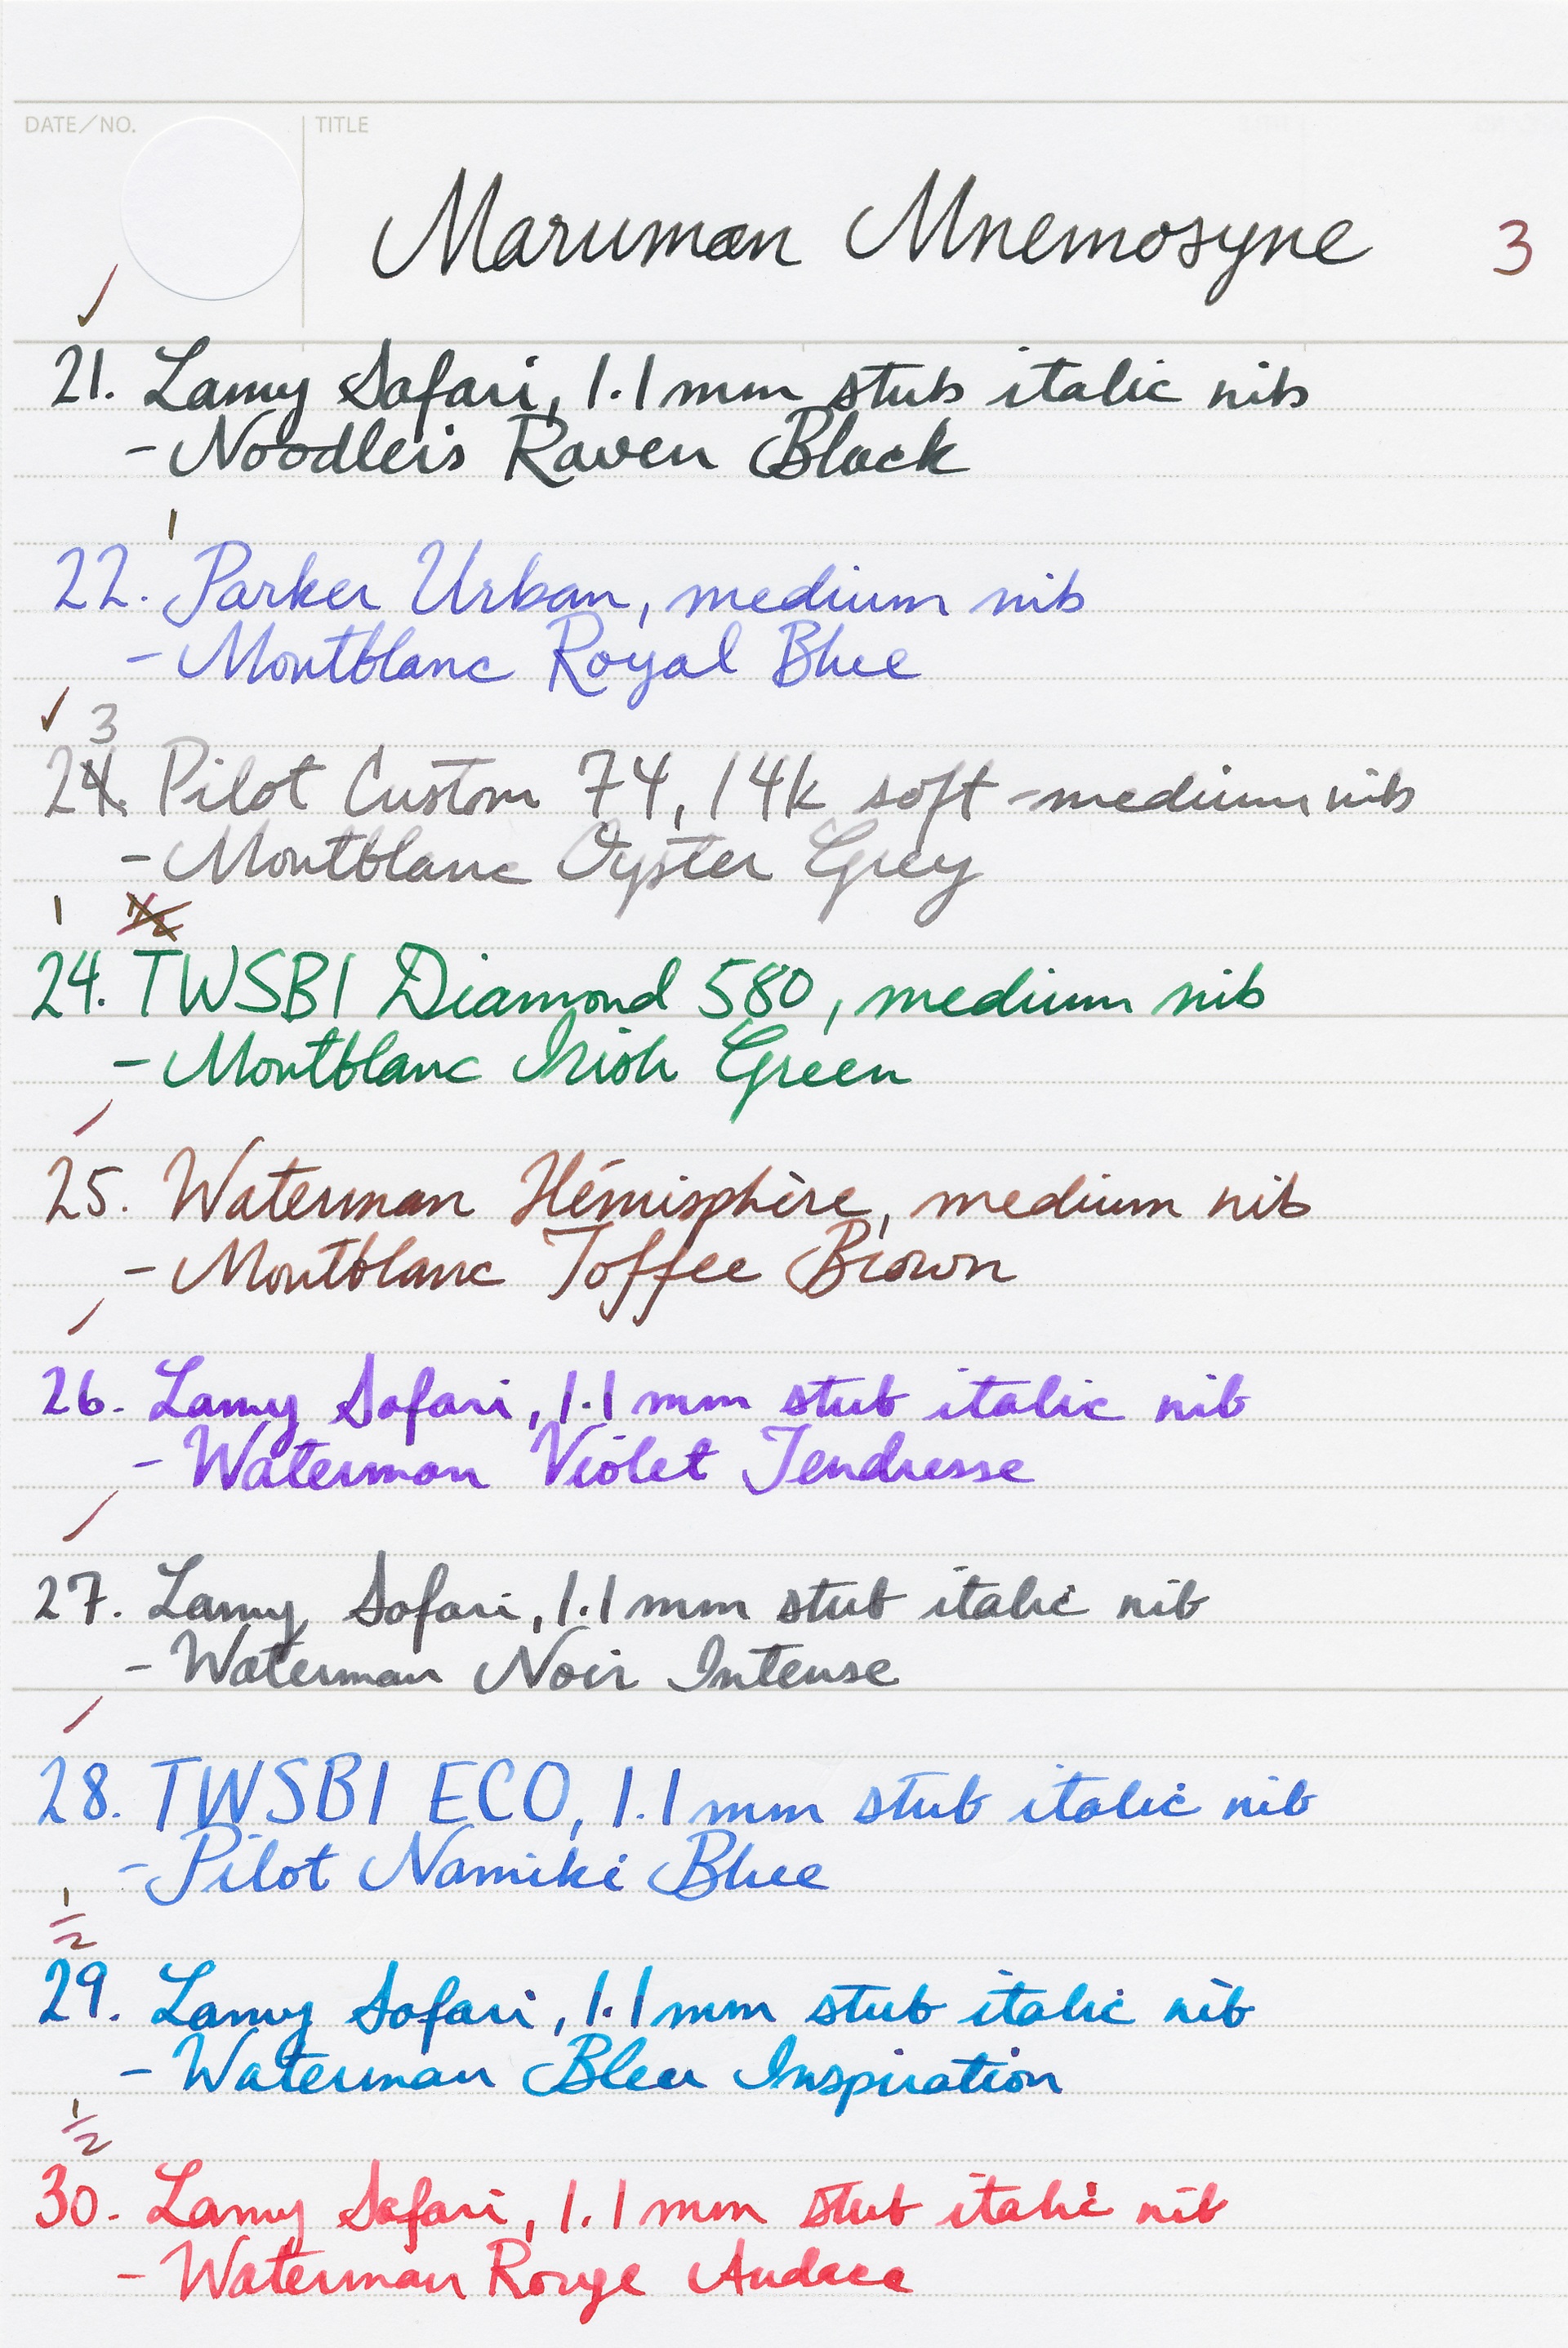 DATE/NO. TITLE
Maruman Mnemosyne 3
✓
21. Lamy Safari, 1.1mm stub italic nib
- Noodler's Raven Black
1
22. Parker Urban, medium nib
- Montblanc Royal Blue
✓ 3
24. Pilot Custom 74, 14k soft-medium nib
- Montblanc Oyster Grey
1 1/2
24. TWSBI Diamond 580, medium nib
- Montblanc Irish Green
/
25. Waterman Hémisphère, medium nib
- Montblanc Toffee Brown
/
26. Lamy Safari, 1.1mm stub italic nib
- Waterman Violet Tendresse
/
27. Lamy Safari, 1.1mm stub italic nib
- Waterman Noir Intense
/
28. TWSBI ECO, 1.1mm stub italic nib
- Pilot Namiki Blue
1/2
29. Lamy Safari, 1.1mm stub italic nib
- Waterman Bleu Inspiration
1/2
30. Lamy Safari, 1.1mm stub italic nib
- Waterman Rouge Audace